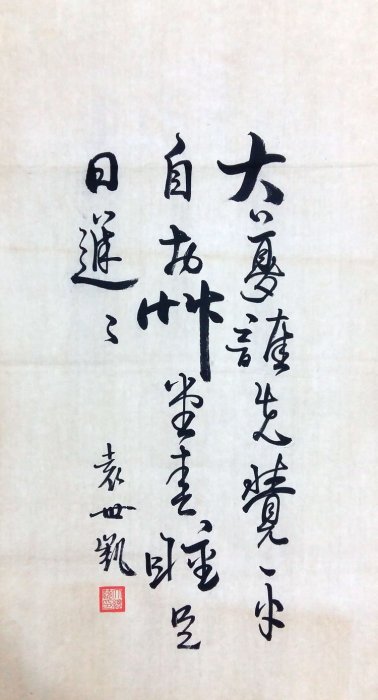 大夢誰先覺平
自知艸堂春睡足
日遲〻
袁世凱